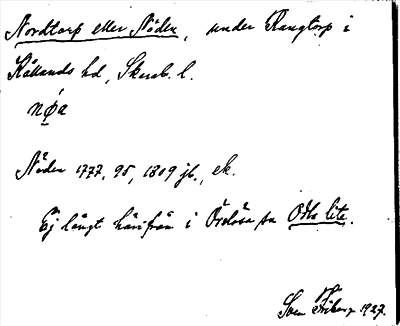 Nordtorp eller Nöden, under Rangtorp i
Kållands hd, Skarab. l.
nǿa
Nöden 1777, 95, 1809 jb., ek.
Ej långt härifrån i Örslösa sn Odla lite.
Sven Friberg 1927.